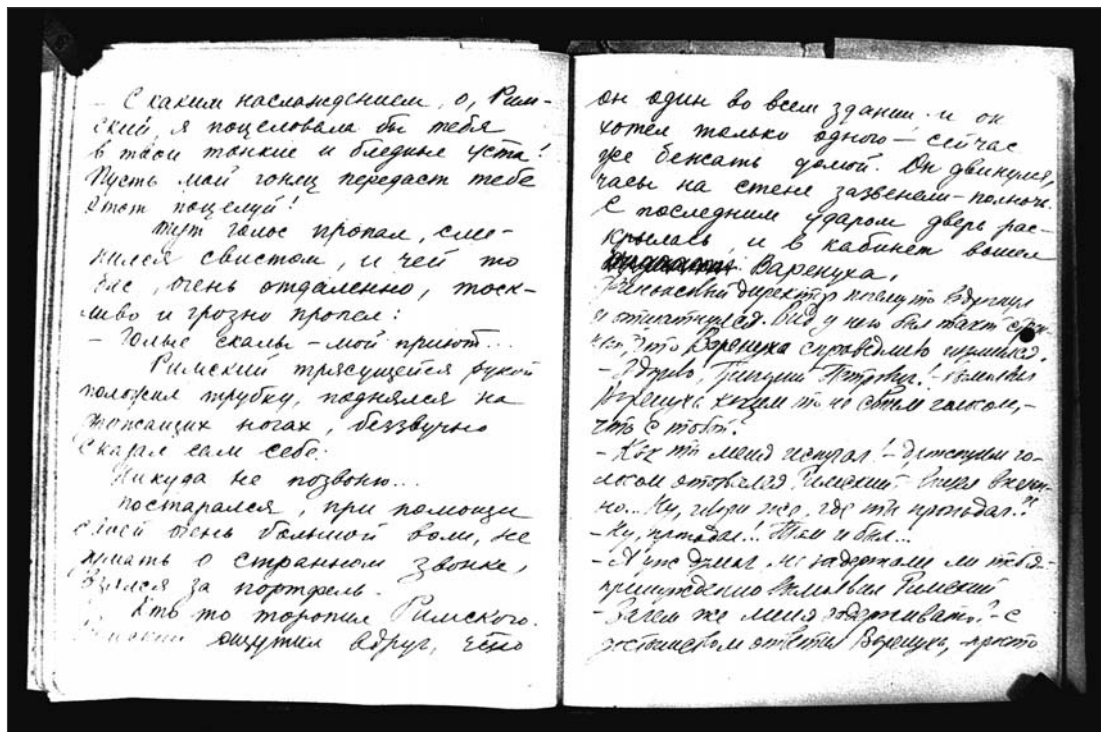 – С каким наслаждением, о, Рим-
ский, я поцеловала бы тебя
в твои тонкие и бледные уста!
Пусть мой гонец передаст тебе
этот поцелуй!
Тут голос пропал, сме-
нился свистом, и чей то
бас, очень отдаленно, тоск-
ливо и грозно пропел:
– Голые скалы – мой приют...
Римский трясущейся рукой
положил трубку, поднялся на
ногах, беззвучно
сказал сам себе:
Никуда не позвоню...
Постарался, при помощи
своей очень большой воли, не
думать о странном звонке,
взялся за портфель.
Кто то торопил Римского.
Римский ощутил вдруг, что
он один во всем здании и он
хотел только одного – сейчас
же бежать домой. Он двинулся,
часы на стене зазвенели – полночь.
С последним ударом дверь рас-
крылась, и в кабинет вошел
Варенуха.
Финансовый директор почему то вздрогнул
и отшатнулся. Вид у него был такой
что Варенуха справедливо изумился.
– Здорово, Григорий – вымолвил
Варенуха каким то не своим голосом, –
что с тобой?
– Как ты меня испугал! – го-
лосом отозвался Римский –
но... Ну, говори же, где ты пропадал?!
– Ну, пропадал!.. Там и был...
– Я уж думал, не задержали ли тебя –
принужденно вымолвил Римский
– Зачем же меня задерживать? – с
достоинством ответил Варенуха, – просто